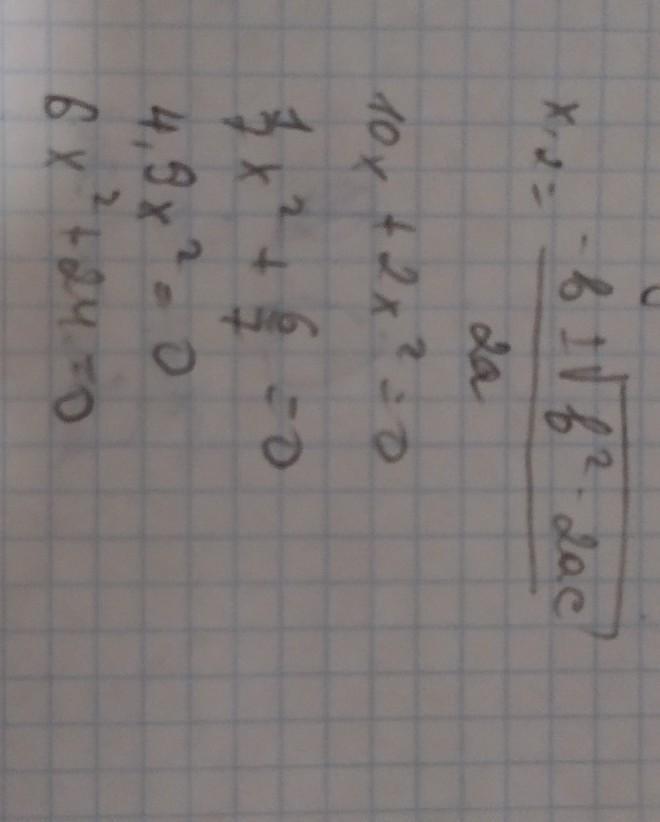 x,₂ = (-b ± √(b² - 2ac)) / 2a
10x + 2x² = 0
1/7 x² + 6/7 = 0
4,9x² = 0
6x² + 24 = 0